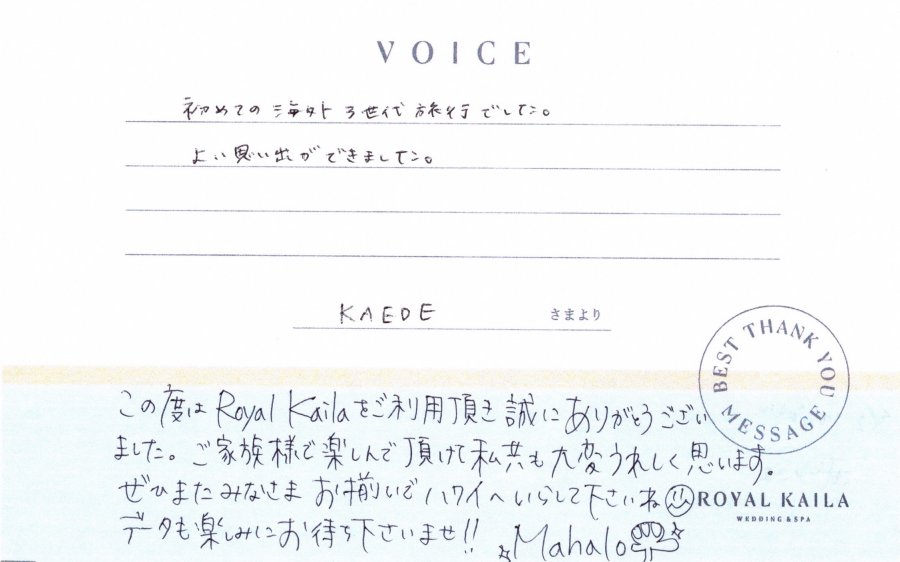 VOICE
初めての海外3世代旅行でした。
よい思い出ができました。
KAEDE さまより
BEST THANK YOU MESSAGE
この度はRoyal Kailaをご利用頂き誠にありがとうござい
ました。ご家族様で楽しんで頂けて私共も大変うれしく思います。
ぜひまたみなさまお揃いでハワイへいらして下さいね
ROYAL KAILA
WEDDING & SPA
データも楽しみにお待ち下さいませ!!
Mahalo